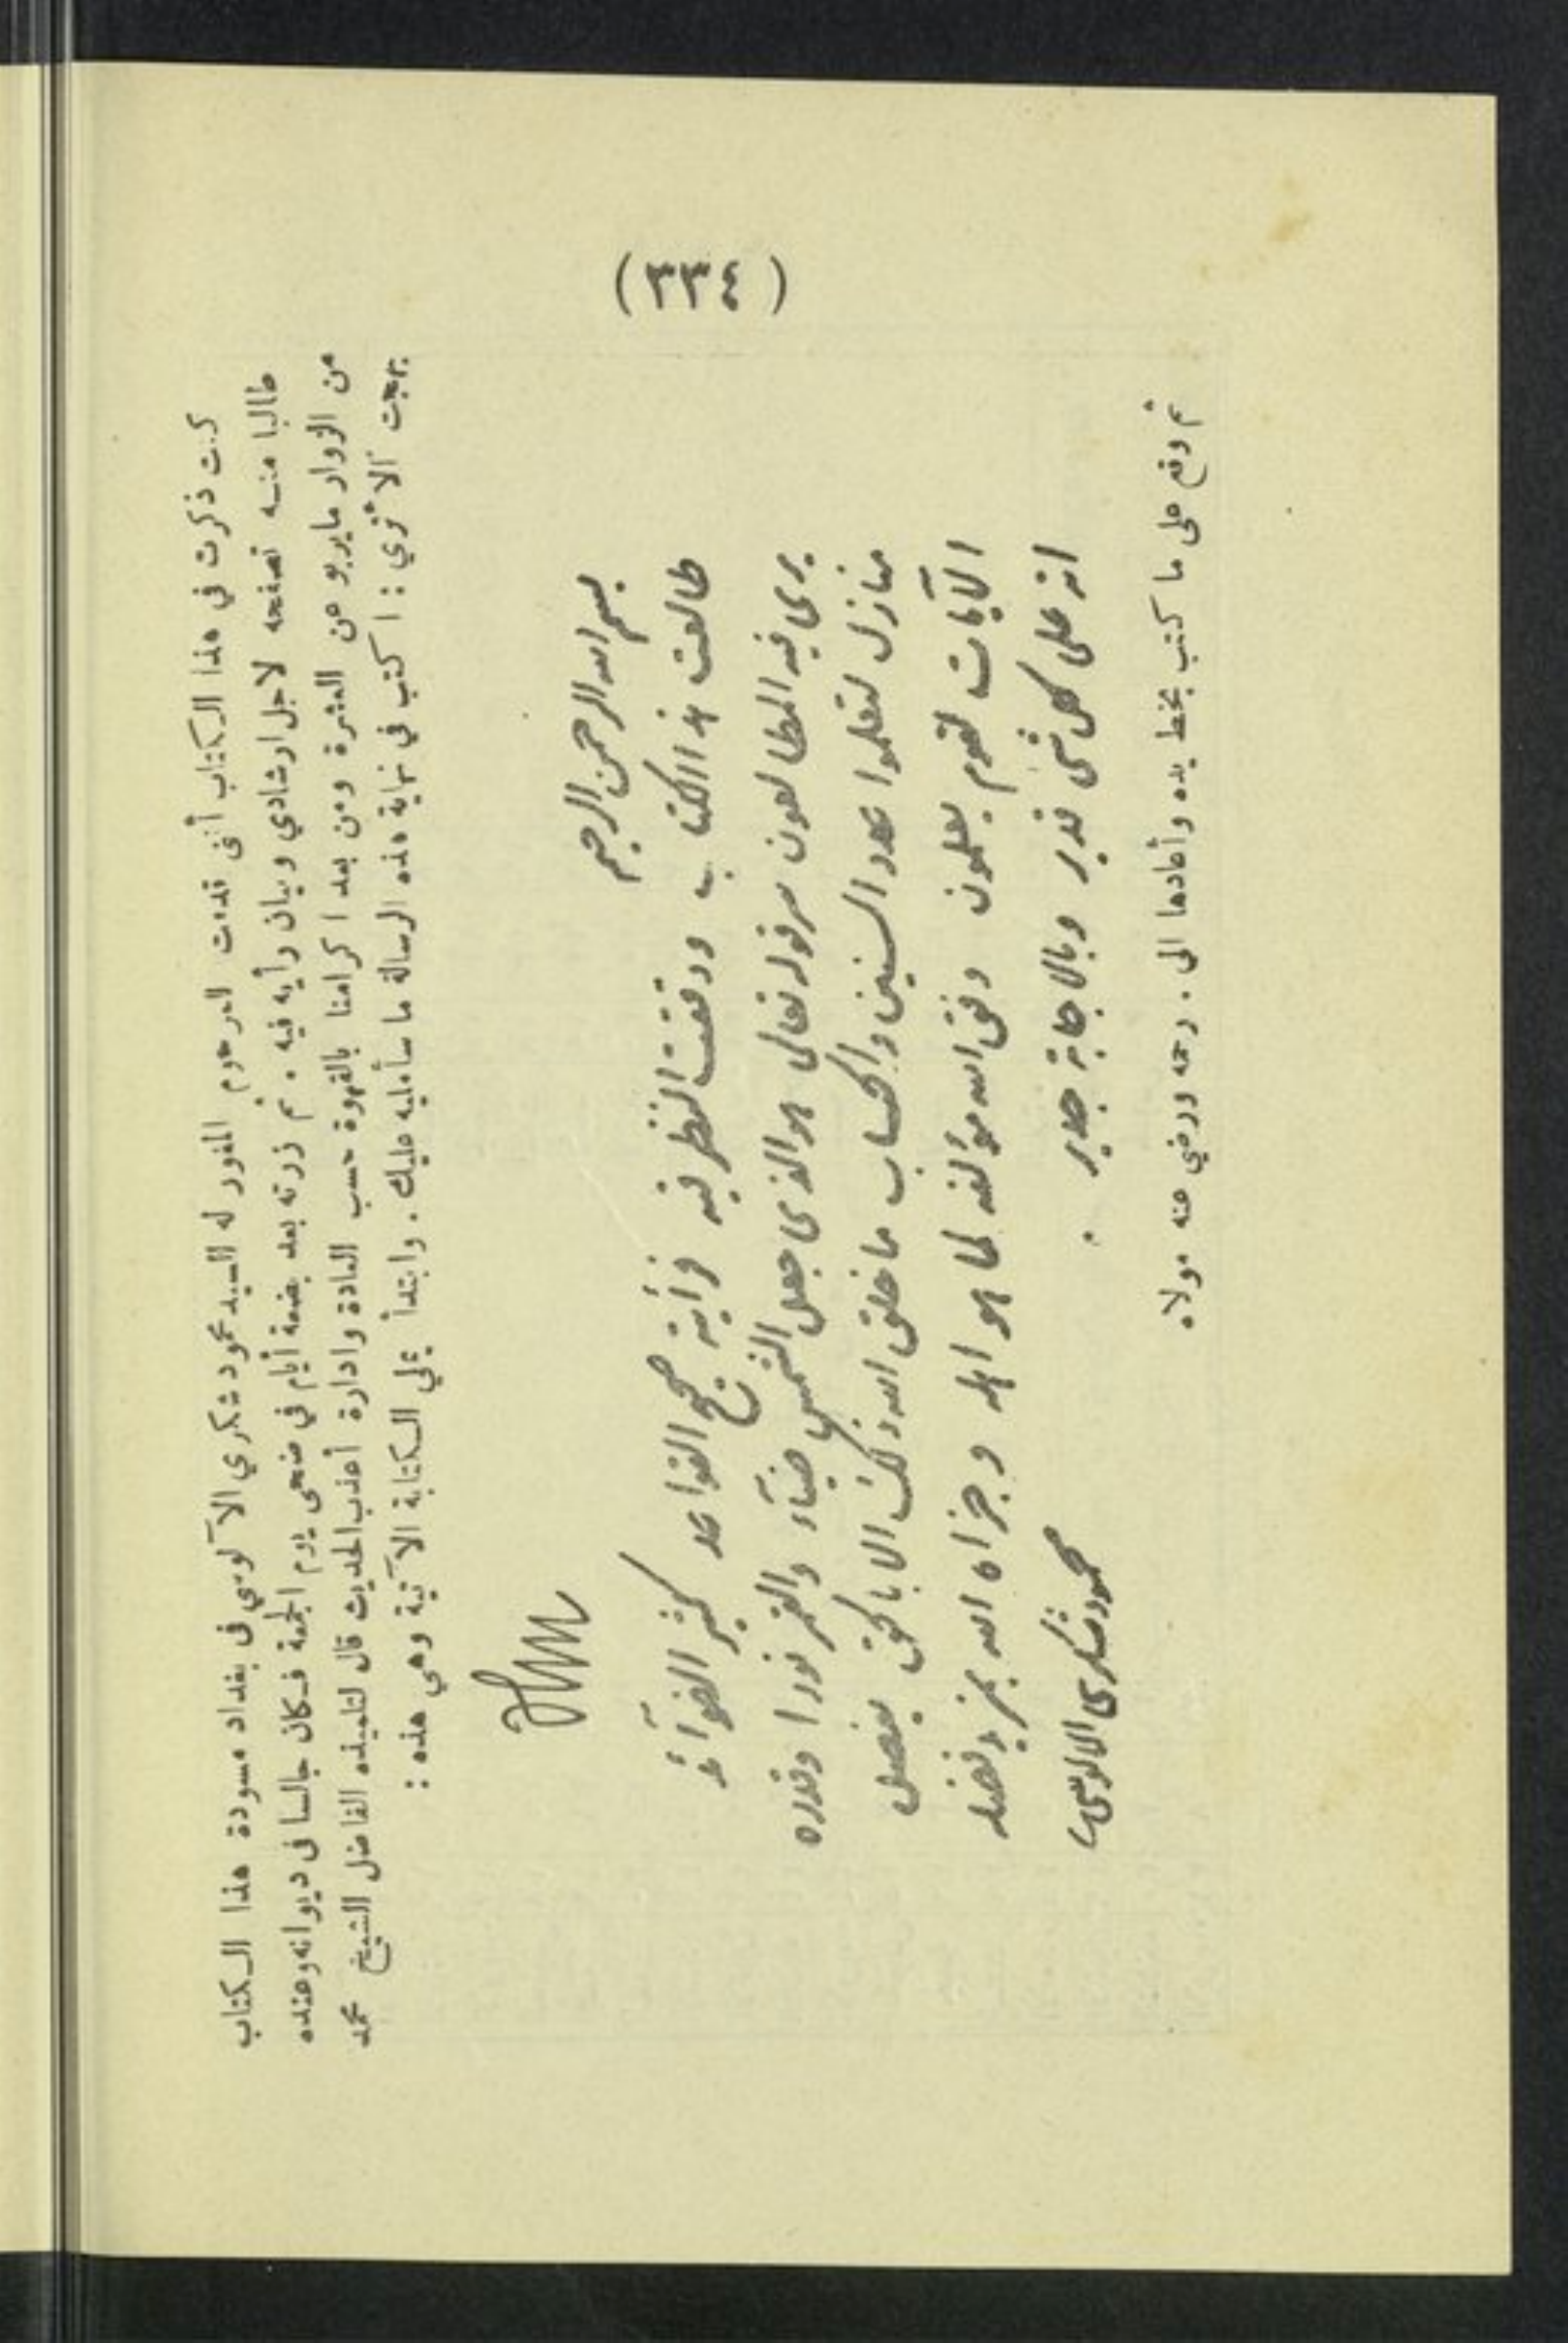 (٣٣٤)
كنت ذكرت في هذا الكتاب أنى قدمت للمرحوم المغفور له السيد محمود شكري الآلوسي فى بغداد مسودة هذا الكتاب
طالبا منه تصفحه لاجل ارشادي وبيان رأيه فيه . ثم زرته بعد بضعة أيام في ضحى يوم الجمعة فكان جالسا فى ديوانه وعنده
من الزوار ما يربو عن العشرة ومن بعد اكرامنا بالقهوة حسب العادة وادارة أعذب الحديث قال لتلميذه الفاضل الشيخ محمد
بهجت الأثري : اكتب في نهاية هذه الرسالة ما سأمليه عليك . وابتدأ يملي الكتابة الآتية وهي هذه :
بسم الله الرحمن الرحيم
طالعت هذا الكتاب ودققت النظر فيه فرأيته صحيح القواعد كثير الفوآئد
يرى فيه المطالعون سر قوله تعالى هو الذى جعل الشمس ضيآء والقمر نورا وقدره
منازل لتعلموا عدد السنين والحساب ما خلق الله ذلك الا بالحق يفصل
الآيات لقوم يعلمون وفق الله مؤلفه لما هو اهله وجزاه الله بمزيد فضله
انه على كل شى قدير وبالاجابة جدير .
محمود شكرى الالوسى
ثم وقع على ما كتب بخط يده وأعادها الى . رحمه ورضي عنه مولاه